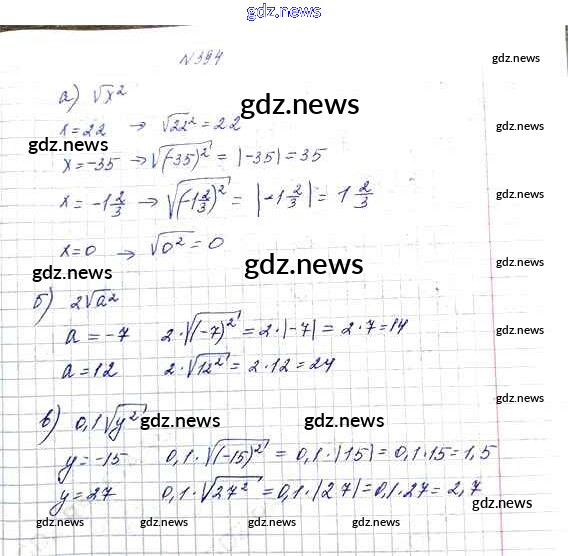 gdz.news
N394
gdz.news
gdz.news
а) √x²
gdz.news
x=22 → √22² = 22
gdz.news
gdz.news
x=-35 → √(-35)² = |-35| = 35
gdz.news
x= -1 2/3 → √(-1 2/3)² = |-1 2/3| = 1 2/3
x=0 → √0² = 0
gdz.news
gdz.news
gdz.news
б) 2√a²
a = -7 2·√(-7)² = 2·|-7| = 2·7=14
gdz.news
a=12 2·√12² = 2·12 = 24
gdz.news
в) 0,1√y²
gdz.news
gdz.news
y=-15 0,1·√(-15)² = 0,1·|15| = 0,1·15=1,5
gdz.news
y=27 0,1·√27² = 0,1·|27| = 0,1·27 = 2,7
gdz.news
gdz.news
gdz.news
gdz.news
gdz.news